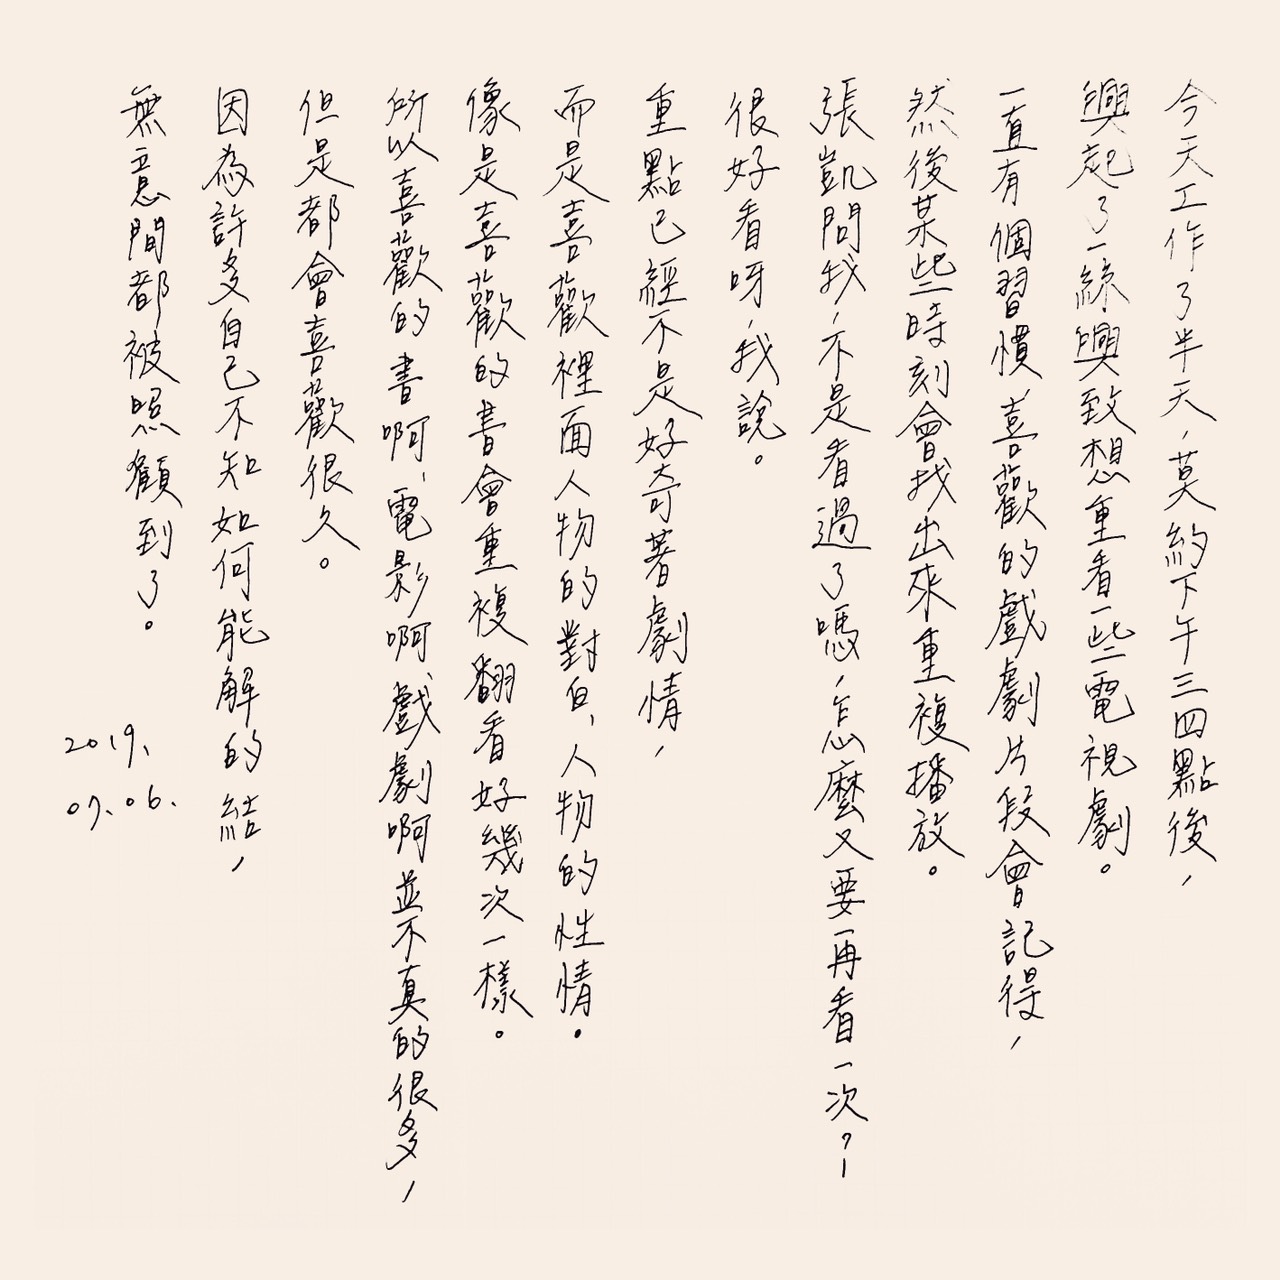 今天工作了半天，莫約下午三四點後，
興起了一絲興致想重看一些電視劇。
一直有個習慣，喜歡的戲劇片段會記得，
然後某些時刻會找出來重複播放。
張凱問我，不是看過了嗎，怎麼又要再看一次？
很好看呀，我說。
重點已經不是好奇著劇情，
而是喜歡裡面人物的對白，人物的性情。
像是喜歡的書會重複翻看好幾次一樣。
所以喜歡的書啊，電影啊，戲劇啊並不真的很多，
但是都會喜歡很久。
因為許多自己不知如何能解的結，
無意間都被照顧到了。
2019.
07.06.